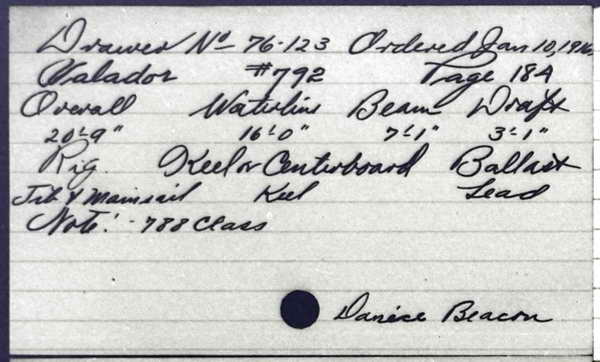 Drawer No 76-123 Ordered Jan 10, 1916
Valador #792 Page 184
Overall Waterline Beam Draft
20'-9" 16'-0" 7'-1" 3'-1"
Rig. Keel or Centerboard Ballast
Jib & Mainsail Keel Lead
Note: - 788 Class
Beacon